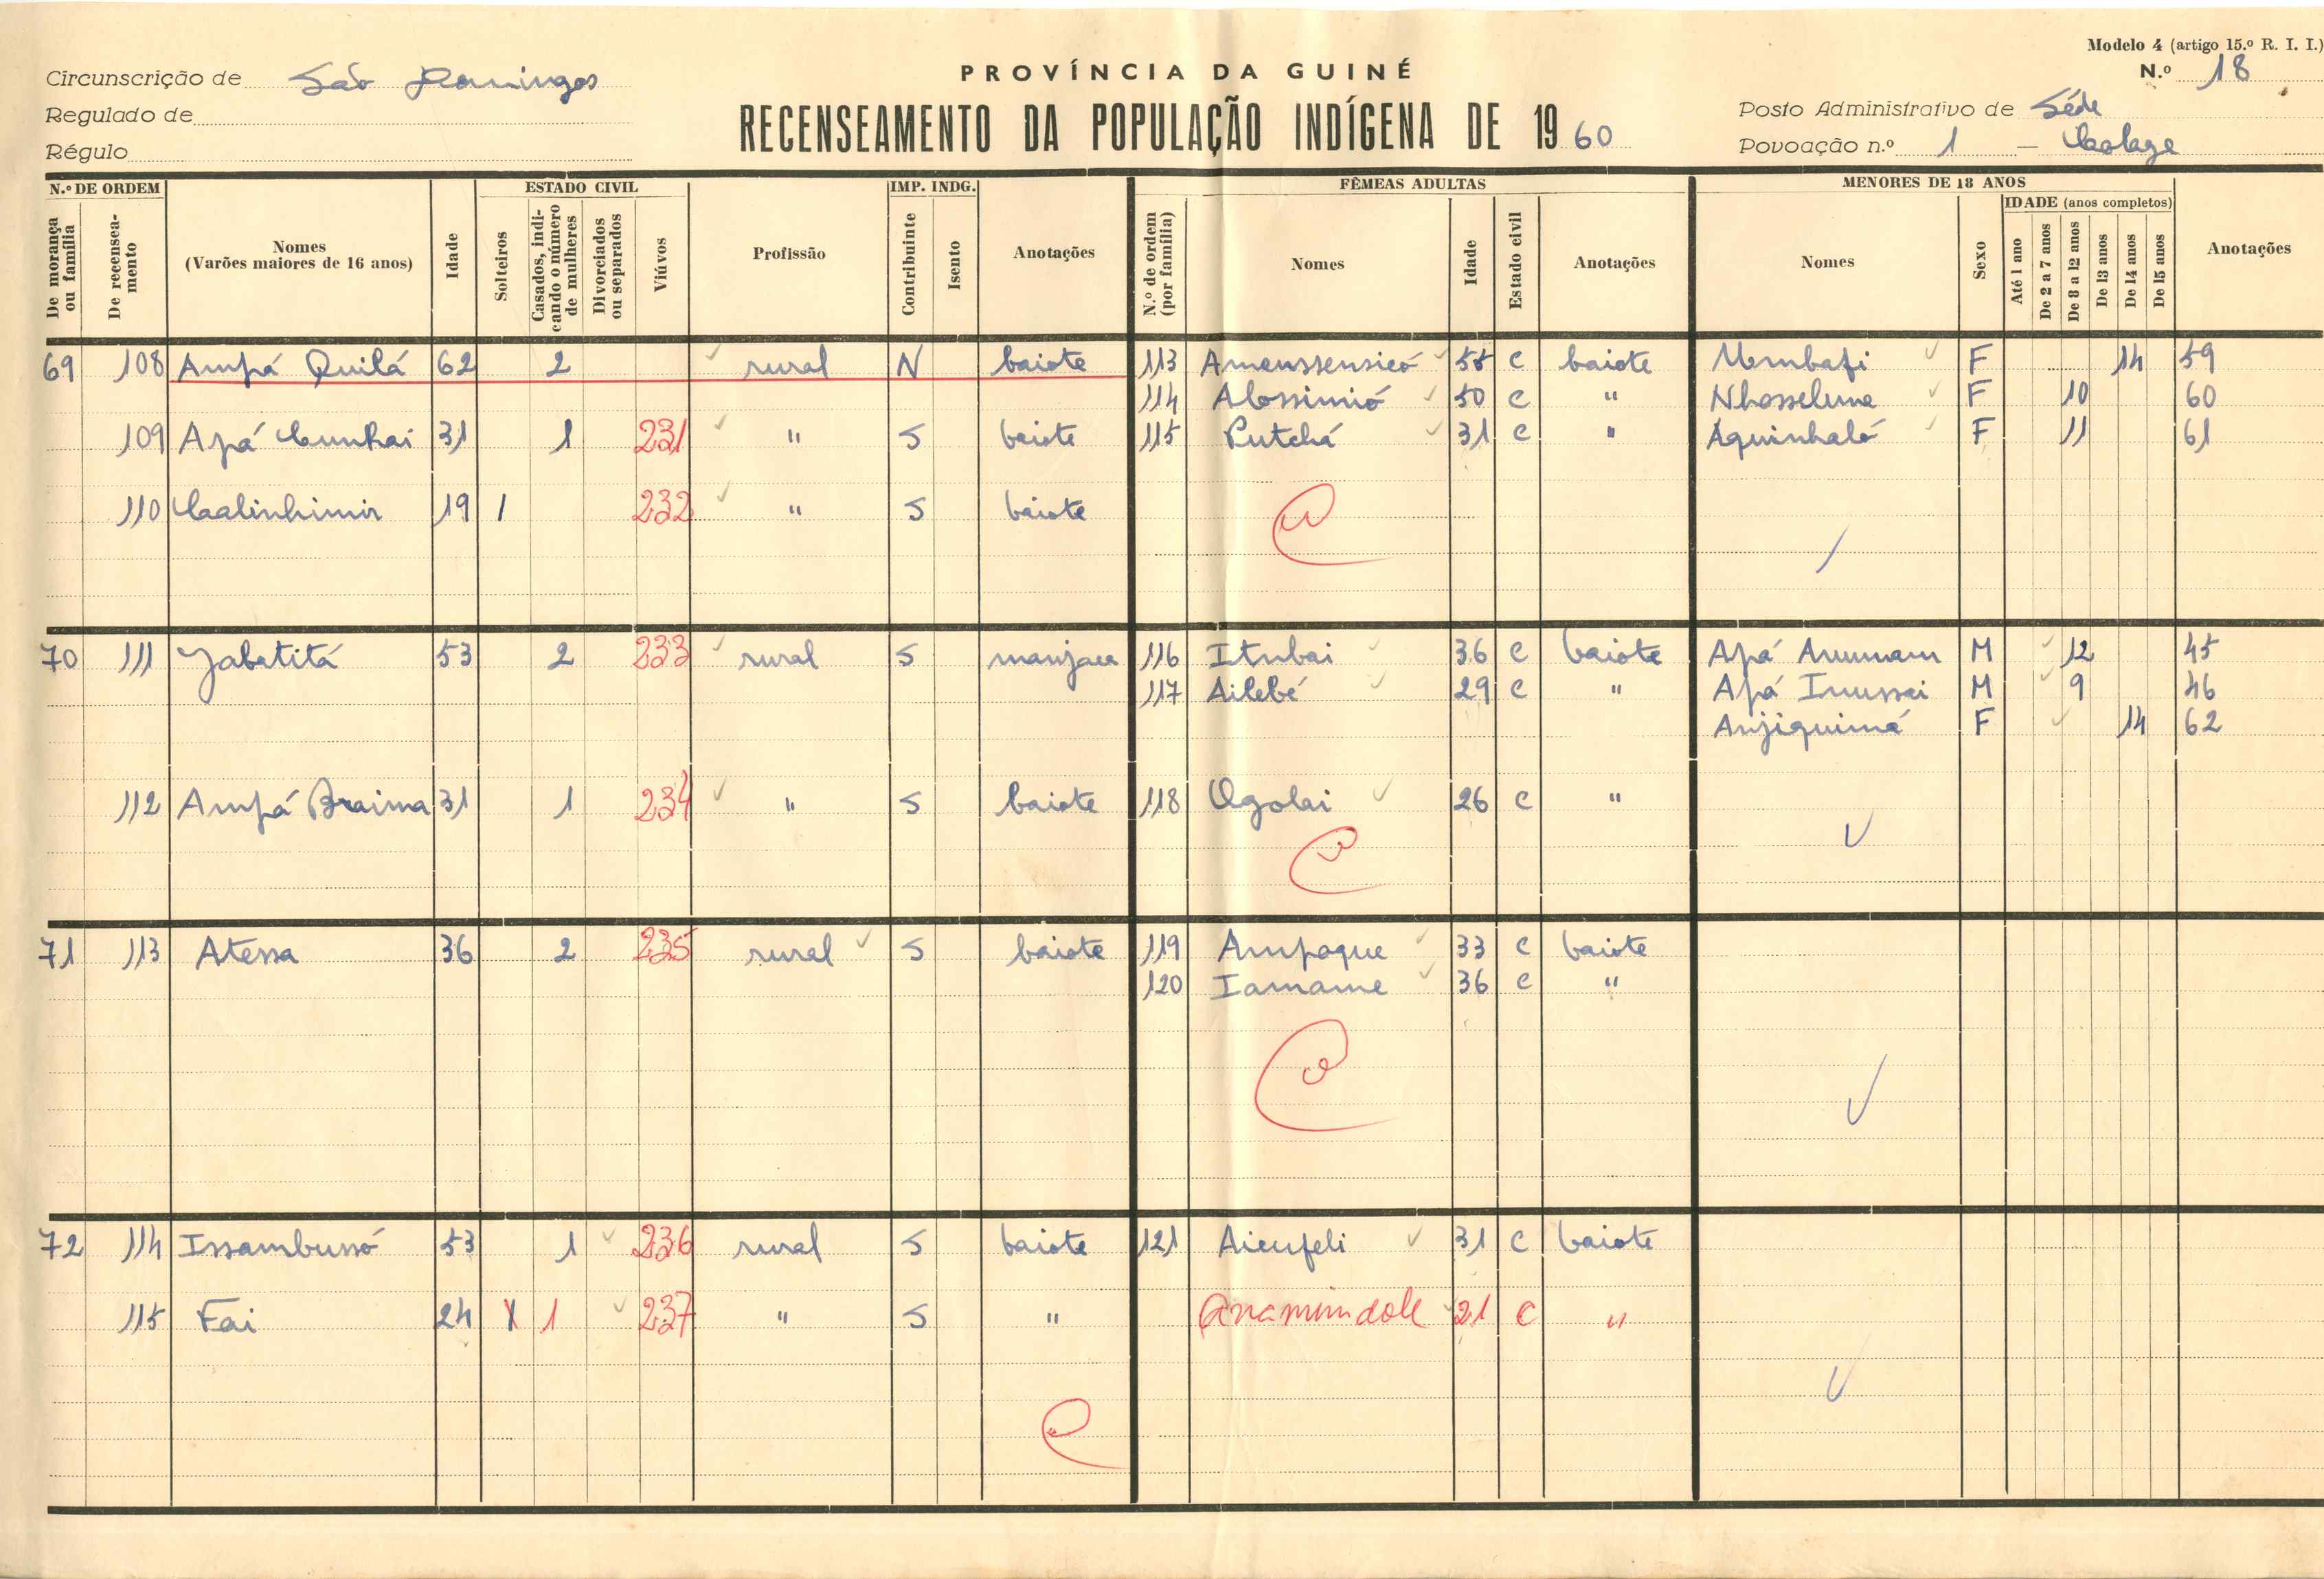 Modelo 4 (artigo 15.º R. I. I.)
Circunscrição de São Domingos
PROVÍNCIA DA GUINÉ
N.º 18
Regulado de
RECENSEAMENTO DA POPULAÇÃO INDÍGENA DE 1960
Posto Administrativo de Séde
Régulo
Povoação n.º 1 —
N.º DE ORDEM
ESTADO CIVIL
IMP. INDG.
FÊMEAS ADULTAS
MENORES DE 18 ANOS
De morança ou família
De recenseamento
Nomes
(Varões maiores de 16 anos)
Idade
Solteiros
Casados, indicando o número de mulheres
Divorciados ou separados
Viúvos
Profissão
Contribuinte
Isento
Anotações
N.º de ordem (por família)
Nomes
Idade
Estado civil
Anotações
Nomes
Sexo
IDADE (anos completos)
Até 1 ano
De 2 a 7 anos
De 8 a 12 anos
De 13 anos
De 14 anos
De 15 anos
Anotações
69 108 Ampá Quilá 62 2 rural N baiote 113 55 c baiote F 14 59
114 Alossimió 50 c " Nhosselume F 10 60
109 Apá Cunhai 31 1 231 " S baiote 115 Putchá 31 c " Aquinhaló F 11 61
110 Calinhimir 19 1 232 " S baiote
70 111 Jabatitá 53 2 233 rural S manjaca 116 Itubai 36 c baiote Apá M 12 45
117 Ailebé 29 c " Apá Inussai M 9 46
Anjiquimá F 14 62
112 Ampá Braima 31 1 234 " S baiote 118 Ogolai 26 c "
71 113 Atessa 36 2 235 rural S baiote 119 Ampaque 33 c baiote
120 Iamame 36 c "
72 114 Issambussó 53 1 236 rural S baiote 121 Aienfeli 31 c baiote
115 Fai 24 1 237 " S " Anamundole 21 c "